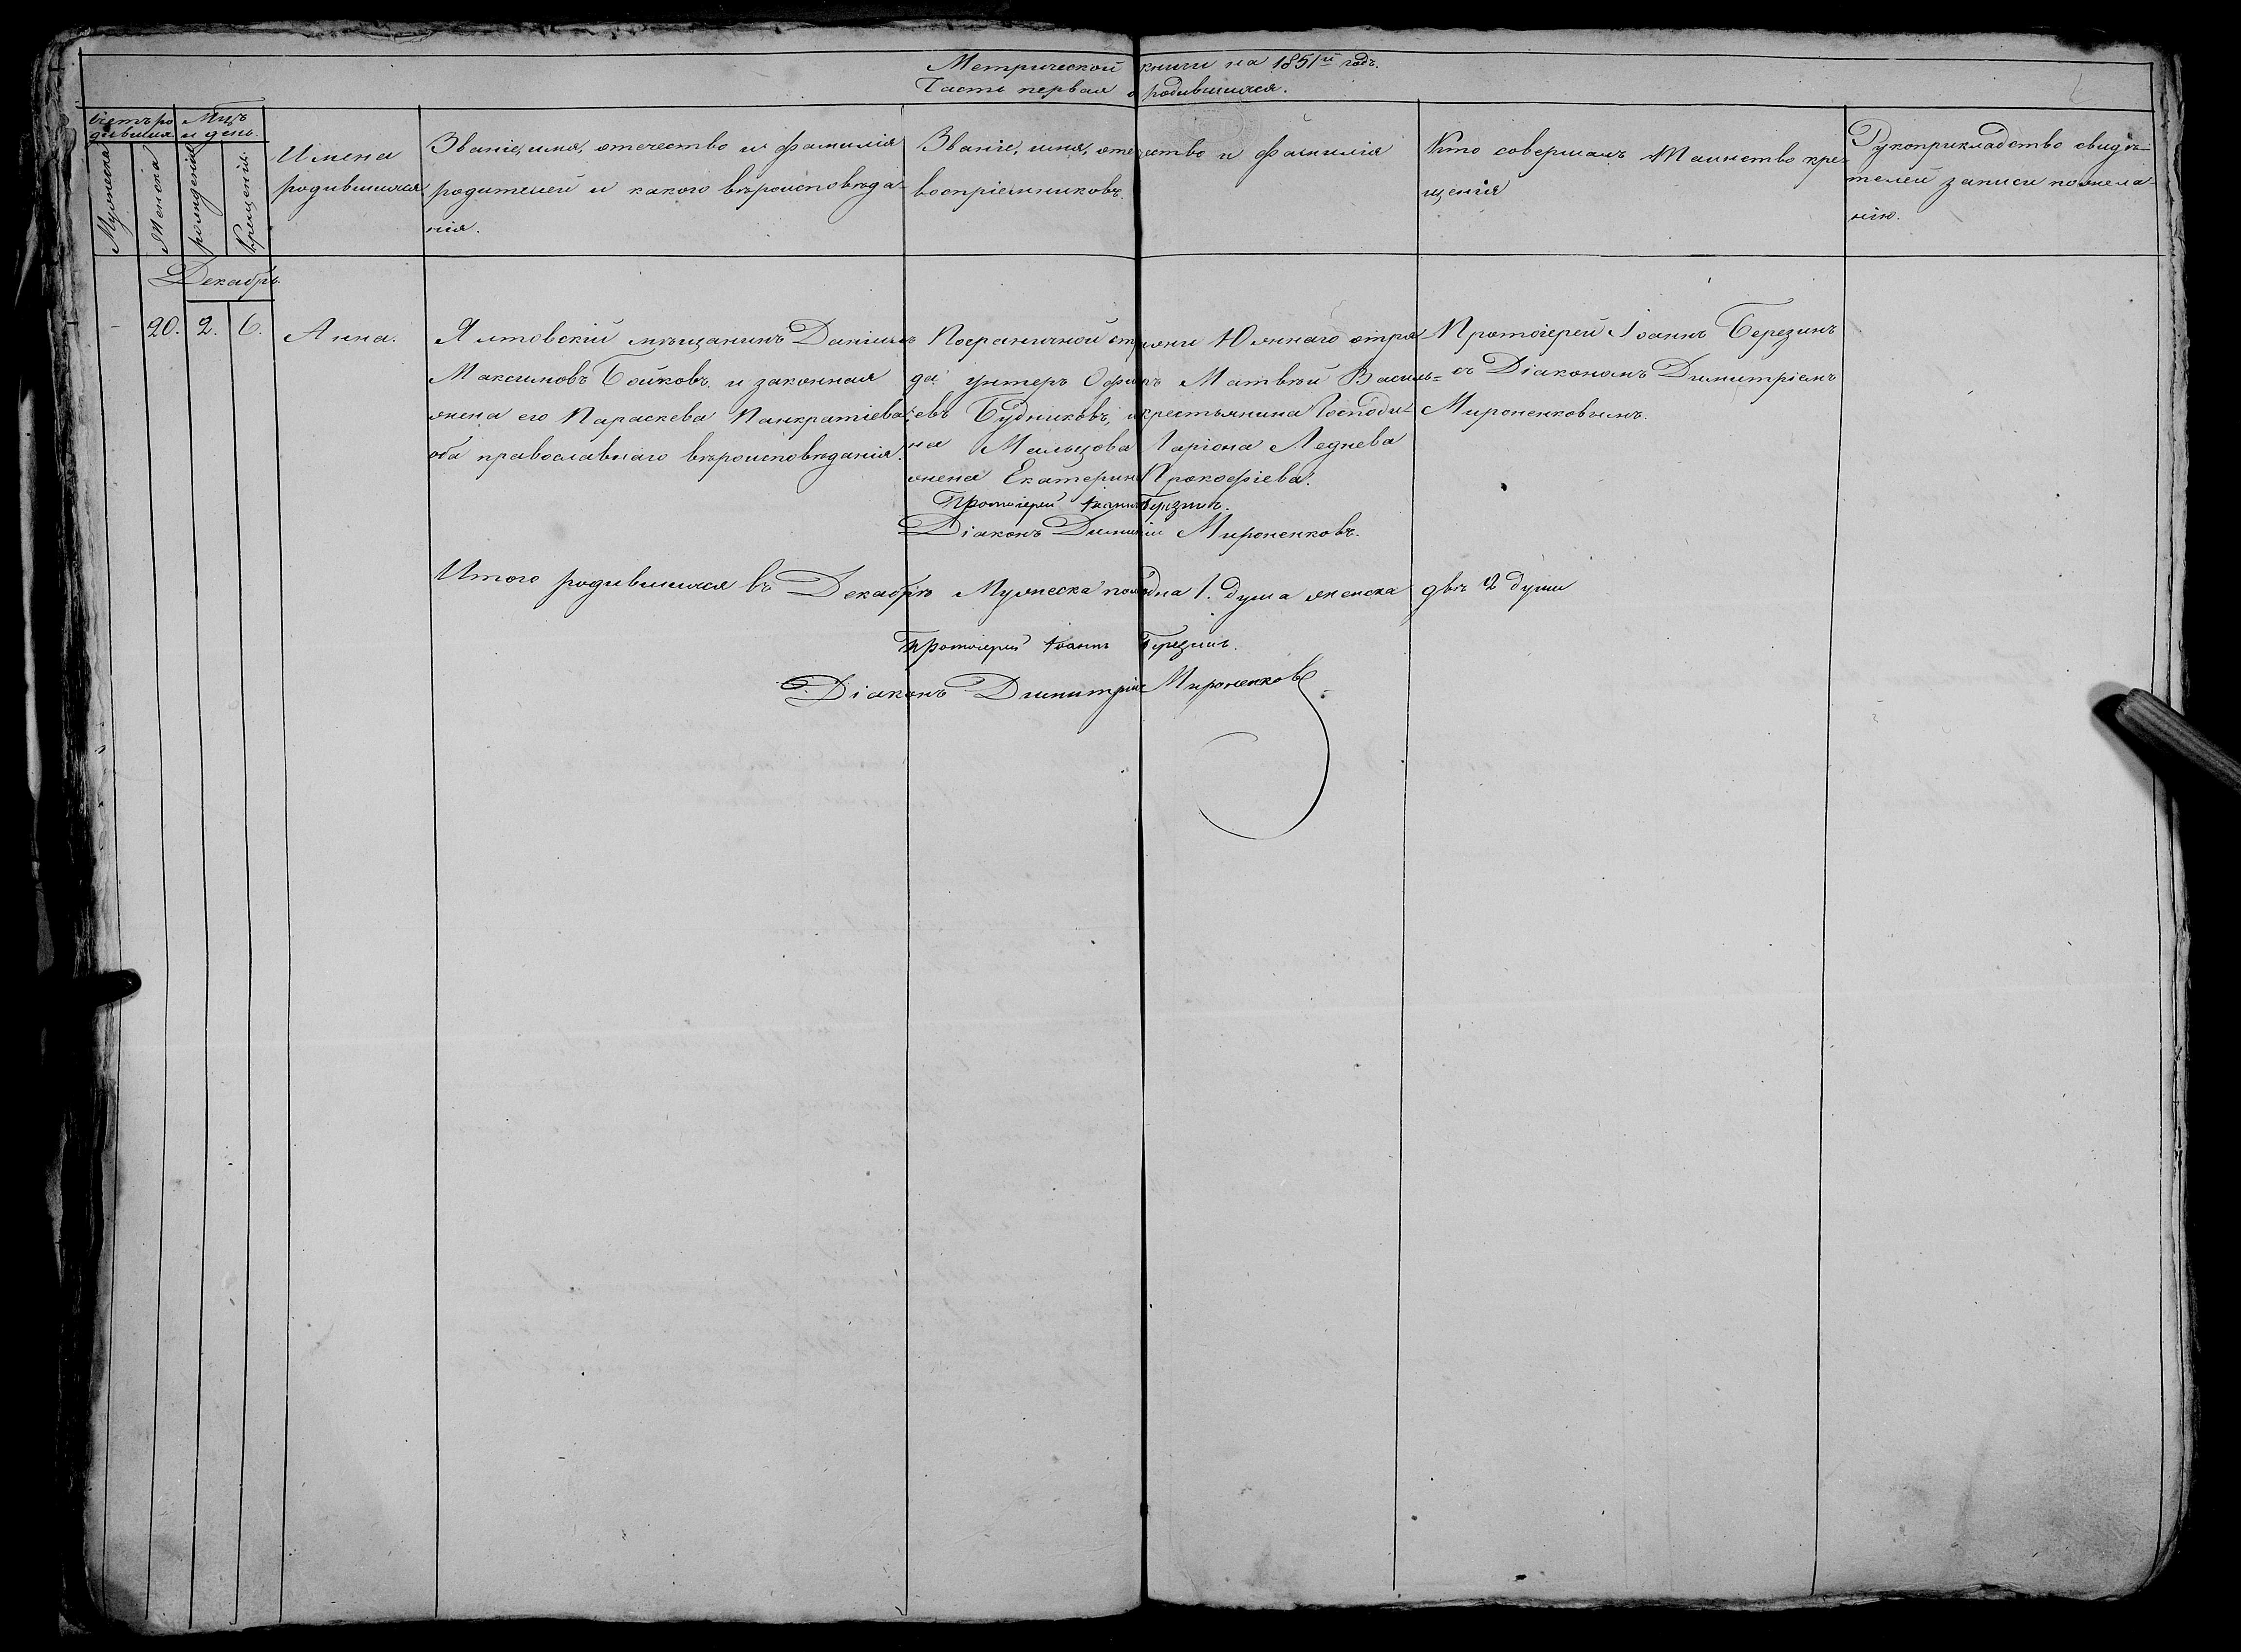 Метрической книги на 1851й годъ.
Часть первая о родившихся.
Счетъ родившихся
Мцъ и день.
Мужеска
Женска
рожденія
Крещенія.
Имена
родившихся
Званіе, имя, отечество и фамилія
родителей и какого вѣроисповѣда-
нія.
Званіе, имя, отечество и фамилія
воспріемниковъ.
Кто совершалъ Таинство кре-
щенія
Рукоприкладство свидѣ-
телей записи пожела-
нію.
Декабрь.
- 20. 2. 6. Анна.
Ялтовскій мѣщанинъ Даніилъ
Максимовъ Бойковъ, и законная
жена его Параскева Панкратіева
оба православнаго вѣроисповѣданія.
Пограничной стражи Южнаго отря-
да унтеръ Офицеръ Матвѣй Василь=
евъ Будниковъ, и крестьянина Господи-
на Мальцова Ларіона Леднева
жена Екатерина Прокофіева.
Протоіерей Іоаннъ Березинъ
съ Діакономъ Димитріемъ
Мироненковымъ.
Протоіерей Іоаннъ Березинъ.
Діаконъ Димитрій Мироненковъ.
Итого родившихся въ Декабрѣ Мужеска пола одна 1. душа женска двѣ 2 души
Протоіерей Іоаннъ Березинъ.
Діаконъ Димитрій Мироненковъ